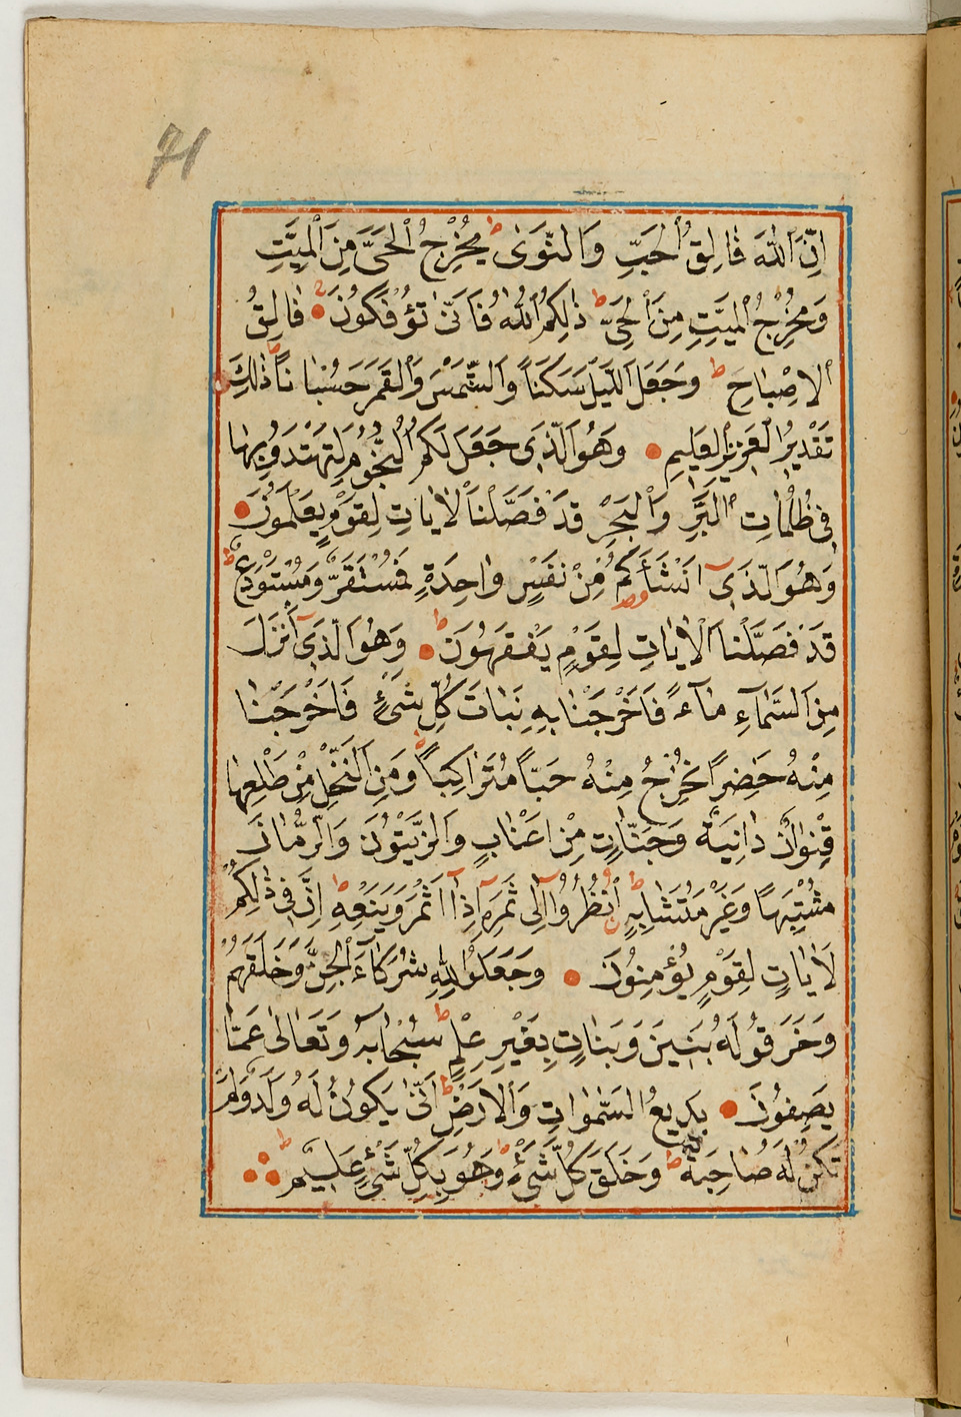 71
اِنَّ اللّٰهَ فَالِقُ الْحَبِّ وَالنَّوٰى ط يُخْرِجُ الْحَىَّ مِنَ الْمَيِّتِ
وَمُخْرِجُ الْمَيِّتِ مِنَ الْحَىِّ ط ذٰلِكُمُ اللّٰهُ فَاَنّٰى تُؤْفَكُونَ فَالِقُ
الْاِصْبَاحِ ط وَجَعَلَ اللَّيْلَ سَكَنًا وَالشَّمْسَ وَالْقَمَرَ حُسْبَانًا ط ذٰلِكَ
تَقْدِيرُ الْعَزِيزِ الْعَلِيمِ وَهُوَ الَّذِى جَعَلَ لَكُمُ النُّجُومَ لِتَهْتَدُوا بِهَا
فِى ظُلُمَاتِ الْبَرِّ وَالْبَحْرِ قَدْ فَصَّلْنَا الْاٰيَاتِ لِقَوْمٍ يَعْلَمُونَ
وَهُوَ الَّذِى اَنْشَأَكُمْ مِنْ نَفْسٍ وَاحِدَةٍ فَمُسْتَقَرٌّ وَمُسْتَوْدَعٌ ط
قَدْ فَصَّلْنَا الْاٰيَاتِ لِقَوْمٍ يَفْقَهُونَ ط وَهُوَ الَّذِى اَنْزَلَ
مِنَ السَّمَاءِ مَاءً فَاَخْرَجْنَا بِهِ نَبَاتَ كُلِّ شَىْءٍ فَاَخْرَجْنَا
مِنْهُ خَضِرًا نُخْرِجُ مِنْهُ حَبًّا مُتَرَاكِبًا وَمِنَ النَّخْلِ مِنْ طَلْعِهَا
قِنْوَانٌ دَانِيَةٌ وَجَنَّاتٍ مِنْ اَعْنَابٍ وَالزَّيْتُونَ وَالرُّمَّانَ
مُشْتَبِهًا وَغَيْرَ مُتَشَابِهٍ ط اُنْظُرُوا اِلٰى ثَمَرِهِ اِذَا اَثْمَرَ وَيَنْعِهِ ط اِنَّ فِى ذٰلِكُمْ
لَاٰيَاتٍ لِقَوْمٍ يُؤْمِنُونَ وَجَعَلُوا لِلّٰهِ شُرَكَاءَ الْجِنَّ وَخَلَقَهُمْ
وَخَرَقُوا لَهُ بَنِينَ وَبَنَاتٍ بِغَيْرِ عِلْمٍ ط سُبْحَانَهُ وَتَعَالٰى عَمَّا
يَصِفُونَ بَدِيعُ السَّمٰوَاتِ وَالْاَرْضِ ط اَنّٰى يَكُونُ لَهُ وَلَدٌ وَلَمْ
تَكُنْ لَهُ صَاحِبَةٌ ط وَخَلَقَ كُلَّ شَىْءٍ ط وَهُوَ بِكُلِّ شَىْءٍ عَلِيمٌ ط